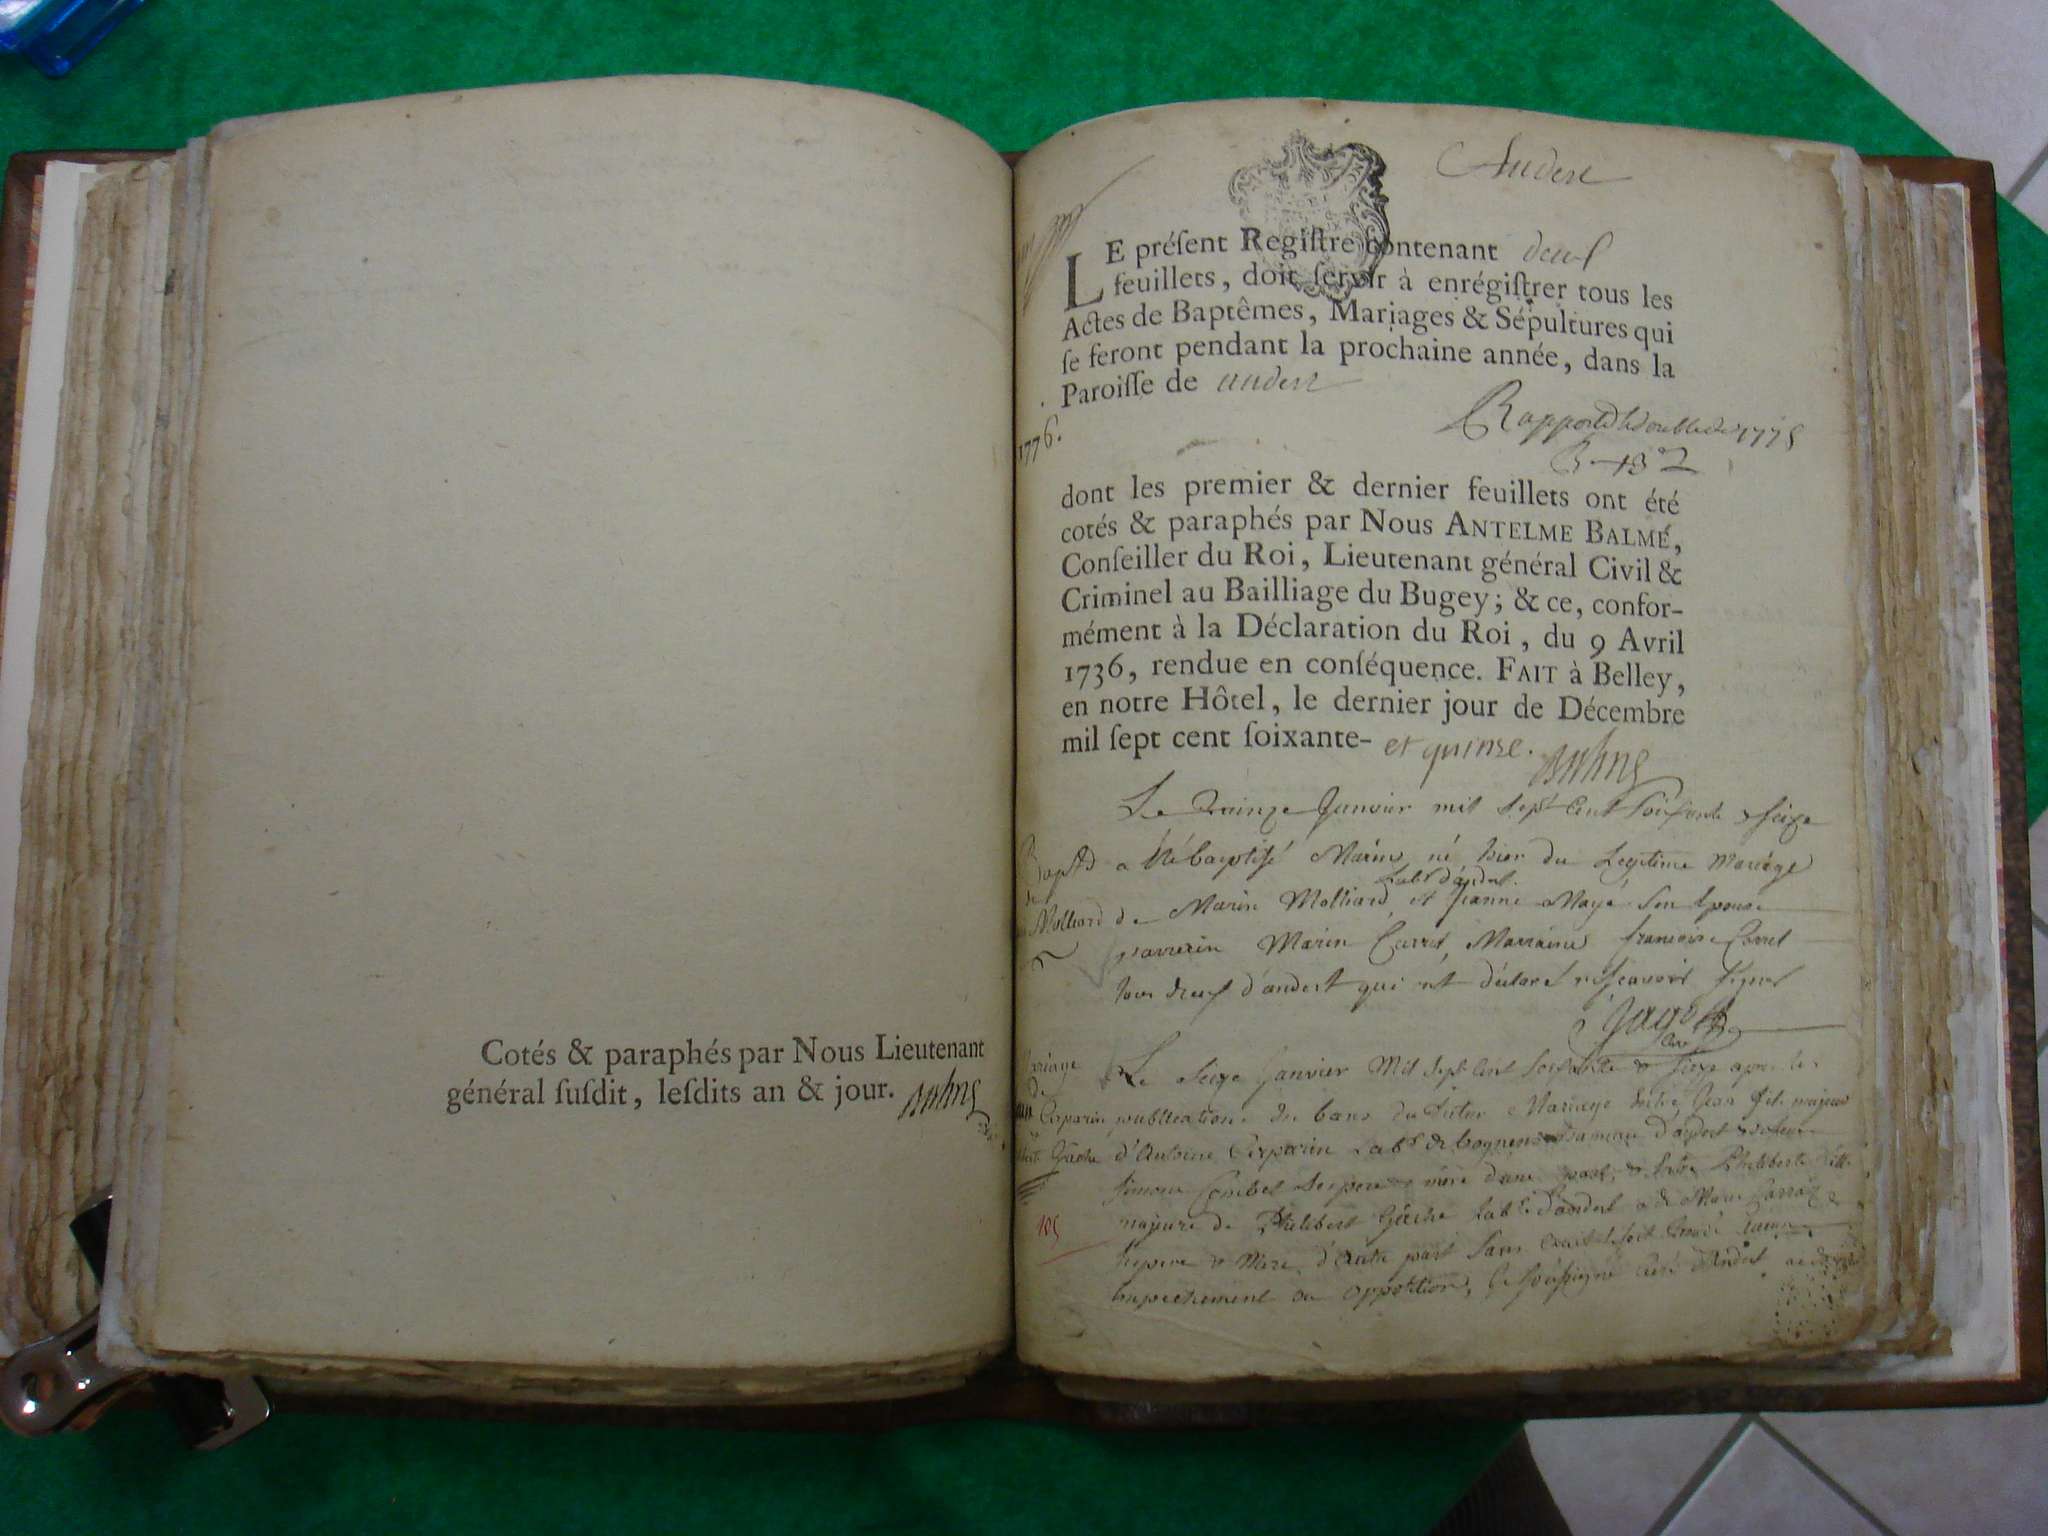 Cotés & paraphés par Nous Lieutenant
général ſuſdit, leſdits an & jour.
Andert
LE préſent Regiſtre contenant deux
feuillets, doit ſervir à enrégiſtrer tous les
Actes de Baptêmes, Mariages & Sépultures qui
ſe feront pendant la prochaine année, dans la
Paroiſſe de andert
1776.
Rapporté le double de 1775
dont les premier & dernier feuillets ont été
cotés & paraphés par Nous ANTELME BALME,
Conſeiller du Roi, Lieutenant général Civil &
Criminel au Bailliage du Bugey; & ce, confor-
mément à la Déclaration du Roi, du 9 Avril
1736, rendue en conſéquence. FAIT à Belley,
en notre Hôtel, le dernier jour de Décembre
mil ſept cent ſoixante- et quinze.
Le quinze Janvier mil Sept Cent Soixante & Seize
Bapt a été baptisé Marin né hier du Legitime Mariage
de
Labr d'andert.
Molliard de Marin Molliard et Jeanne Maye Son Epouse
parrein Marin Carret, Marraine francoise Carret
tous deux d'andert qui ont déclaré ne Scavoir Signer
Mariage Le Seize Janvier Mil Sept Cent Soixante & Seize après la
de
publication de bans du futur Mariage Entre Jean fils majeur
Gache d'Antoine Labr de hameau d'andert
père mère d'une part, & Entre Philiberte fille
majeure de Philibert Gache Labr d'andert & de Marie
105
père & Mère d'Autre part Sans aucun
Empechement ou opposition, Je Soussigné Curé d'Andert